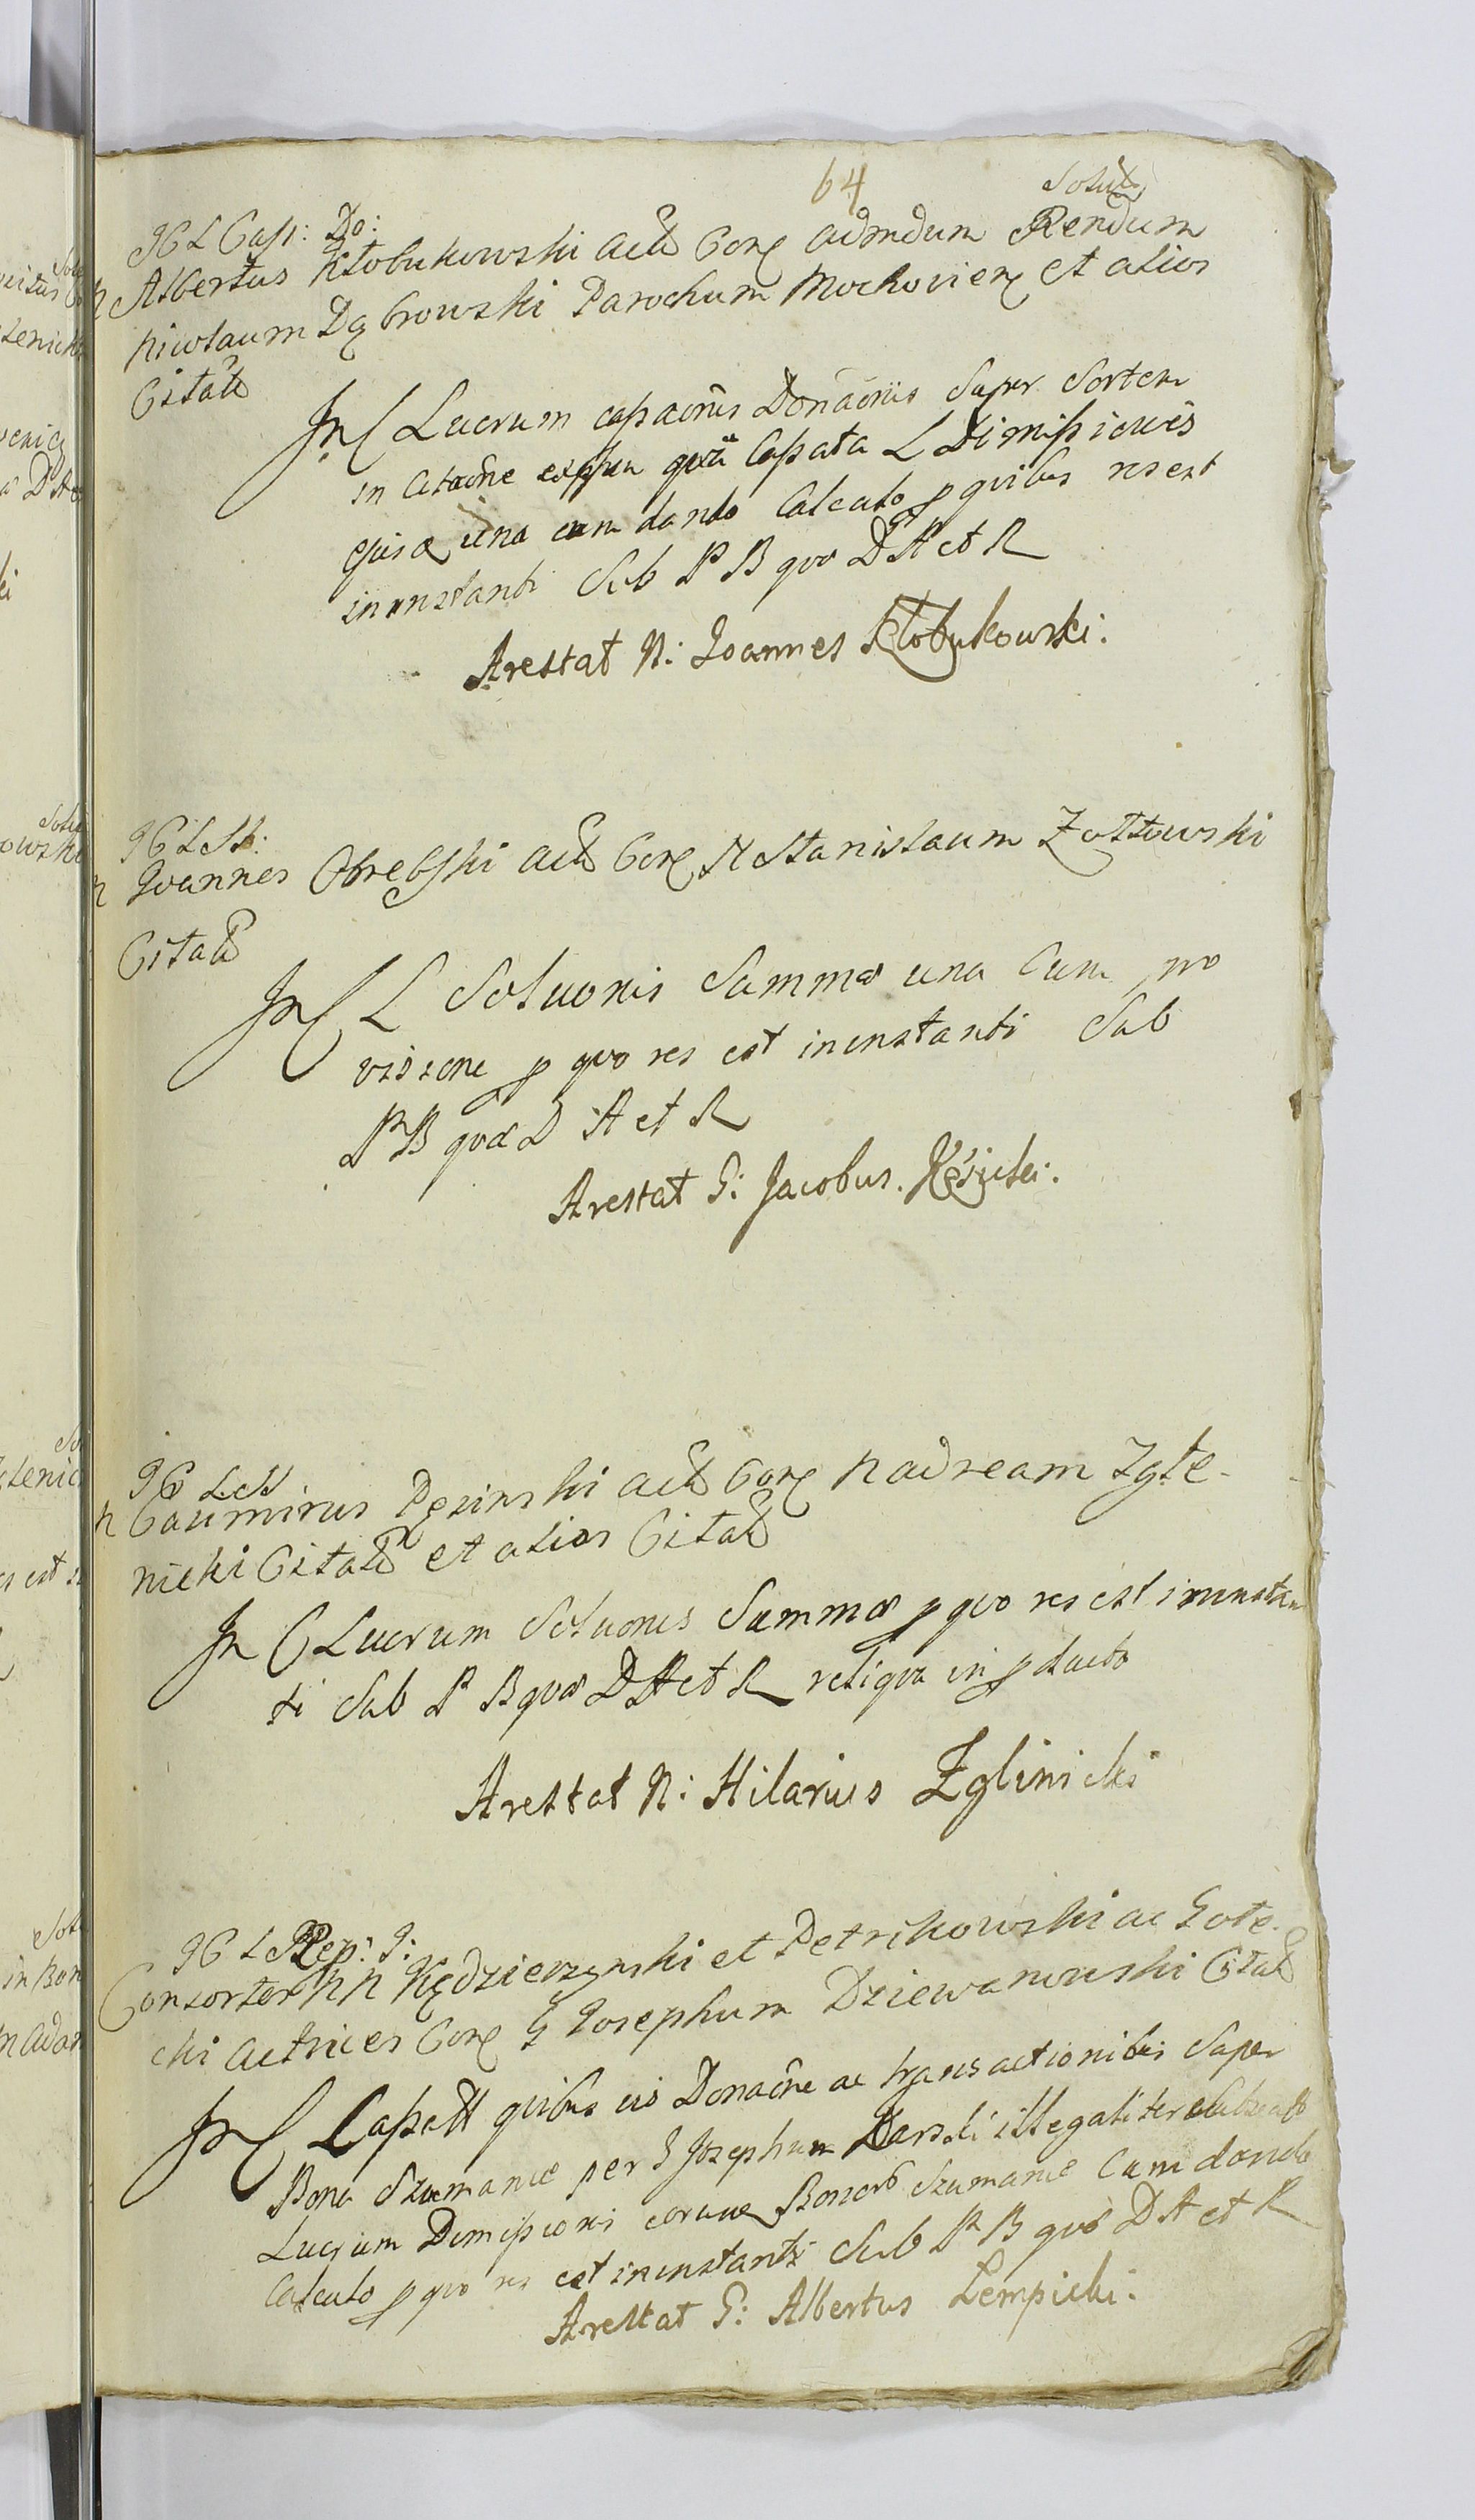 64
Solut
IC L Cass: Do:
N Albertus Kłobukowski act Cor admdum Rendum
Nicolaum Dąbrowski Parochum Mochoviens et alios
Citat
In C Lucrum cassaonis Donaonis super sortem
in citaone expssa qua Cassata L Dimissionis
ejusq una cum dando Calculo p quibus res est
in instanti sub P B quo D A et R
Arestat N: Joannes Kłobukowski:
IC L St:
N Joannes Obrębski act Cor N Stanislaum Zołtowski
Citat
In C L Soluonis Summæ una Cum pro
visione p quo res est in instanti sub
P B quo D A et R
Arestat G: Jacobus
IC L St
N Casimirus Pęsinski act Cor N Adream Zgle-
nicki Citat et alios Citat
In C Lucrum Soluonis Summæ p quo res est in instan
ti sub P B quo D A et R reliqua in pducto
Arestat N: Hilarius Zglinicki
IC L Rep: J:
Consortes NN Kędzierzynski et Petrikowski ac Gole-
cki actrices Cor G Josephum Dziewanowski Citat
In C Cassatt quibus vis Donaone ac transactionibus super
Bona Szumanie per G Josephum Karski illegaliter
Lucrum Dimissionis eorumq Bonor Szumanie Cum dando
Calculo p quo res est in instanti sub P B quo D A et R
Arestat G: Albertus Lempicki: